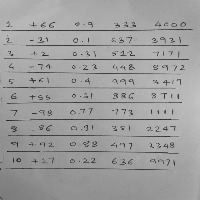 1 +66 0.9 333 4000
2 -31 0.1 637 3931
3 +2 0.31 512 7171
4 -74 0.23 448 8972
5 +61 0.4 999 3417
6 +55 0.51 886 3711
7 -98 0.77 773 1111
8 -86 0.91 351 2247
9 +92 0.88 497 2348
10 +27 0.22 636 9971